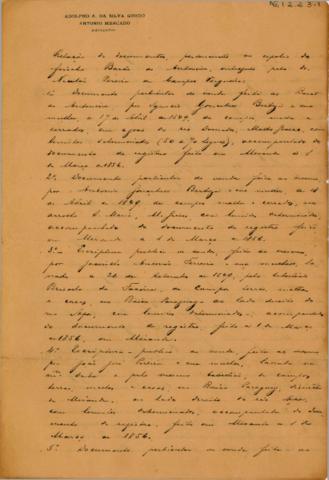 Nº 1223-1
ADOLPHO A. DA SILVA GORDO
ANTONIO MERCADO
ADVOGADOS
Relação de documentos, pertencentes ao espolio do
finado Barão de Antonina, entregues pelo dr.
Nicolau Pereira de Campos Vergueiro.
1º Documento particular de venda feita ao Barão
de Antonina por Ignacio Gonçalves Barbosa e sua
mulher, a 17 de Abril de 1849, de campos, mattos e
cerrados, em aguas do rio Dourado, Matto Grosso, com
limites determinados, acompanhado do
documento de registro feito em Miranda a 1
de Março de 1856.
2º Documento particular de venda feita ao mesmo,
por Antonio Gonçalves Barbosa e sua mulher, a
de Abril de 1849 de campos, mattos e cerrados, em
S. Maria, M. Grosso, com limites determinados,
acompanhado do documento de registro feito
em Miranda a 1 de Março de 1856.
3º Escriptura publica de venda, feita ao mesmo,
por e sua mulher,
a 26 de Setembro de 1849, pelo tabellião
de campos, terras, mattos
e cerrados, em Baixo Paraguay ao lado direito do
rio com limites determinados, acompanhada
do documento de registro, feito a 1 de Março
de 1856, em Miranda.
4º Escriptura publica de venda, feita ao mesmo
por João José Pereira e sua mulher, lavrada na
mesma data e pelo mesmo tabellião, de campos,
terras, mattos e cerrados, em Baixo Paraguay, districto
de Miranda, ao lado direito do rio
com limites determinados, acompanhada do docu-
mento de registro, feito em Miranda a 1 de
Março de 1856.
5º Documento particular de venda feita ao